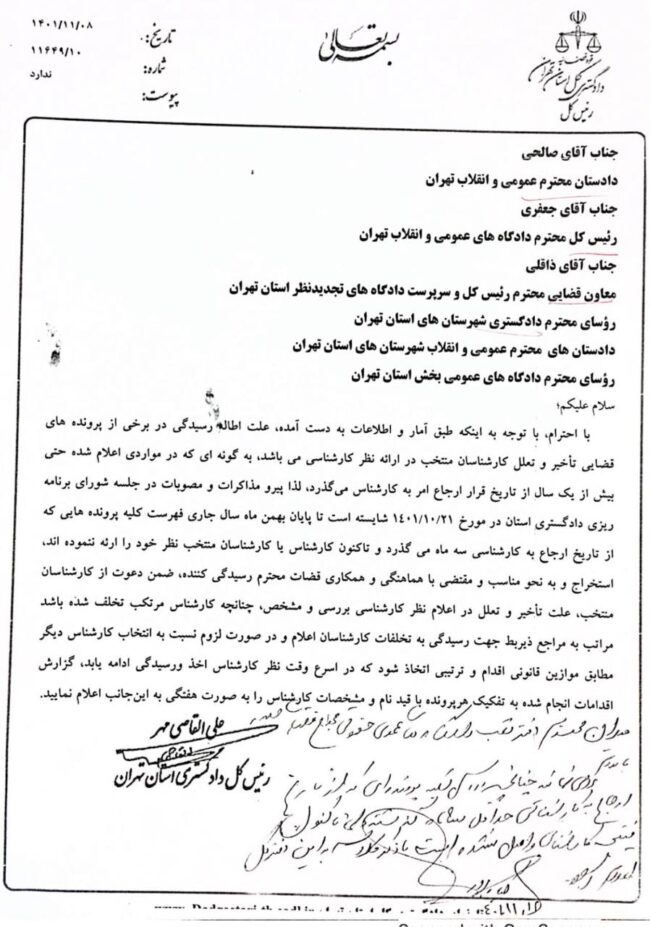 بسمه تعالی
قوه قضاییه
دادگستری کل استان تهران
رئیس کل
تاریخ: ۱۴۰۱/۱۱/۰۸
شماره: ۱۱۶۴۹/۱۰
پیوست: ندارد
جناب آقای صالحی
دادستان محترم عمومی و انقلاب تهران
جناب آقای جعفری
رئیس کل محترم دادگاه های عمومی و انقلاب تهران
جناب آقای ذاقلی
معاون قضایی محترم رئیس کل و سرپرست دادگاه های تجدیدنظر استان تهران
رؤسای محترم دادگستری شهرستان های استان تهران
دادستان های محترم عمومی و انقلاب شهرستان های استان تهران
رؤسای محترم دادگاه های عمومی بخش استان تهران
سلام علیکم؛
با احترام، با توجه به اینکه طبق آمار و اطلاعات به دست آمده، علت اطاله رسیدگی در برخی از پرونده های
قضایی تأخیر و تعلل کارشناسان منتخب در ارائه نظر کارشناسی می باشد، به گونه ای که در مواردی اعلام شده حتی
بیش از یک سال از تاریخ قرار ارجاع امر به کارشناس می‌گذرد، لذا پیرو مذاکرات و مصوبات در جلسه شورای برنامه
ریزی دادگستری استان در مورخ ۱۴۰۱/۱۰/۲۱ شایسته است تا پایان بهمن ماه سال جاری فهرست کلیه پرونده هایی که
از تاریخ ارجاع به کارشناسی سه ماه می گذرد و تاکنون کارشناس یا کارشناسان منتخب نظر خود را ارئه ننموده اند،
استخراج و به نحو مناسب و مقتضی با هماهنگی و همکاری قضات محترم رسیدگی کننده، ضمن دعوت از کارشناسان
منتخب، علت تأخیر و تعلل در اعلام نظر کارشناسی بررسی و مشخص، چنانچه کارشناس مرتکب تخلف شده باشد
مراتب به مراجع ذیربط جهت رسیدگی به تخلفات کارشناسان اعلام و در صورت لزوم نسبت به انتخاب کارشناس دیگر
مطابق موازین قانونی اقدام و ترتیبی اتخاذ شود که در اسرع وقت نظر کارشناس اخذ ورسیدگی ادامه یابد، گزارش
اقدامات انجام شده به تفکیک هرپرونده با قید نام و مشخصات کارشناس را به صورت هفتگی به این‌جانب اعلام نمایید.
علی القاصی مهر
رئیس کل دادگستری استان تهران